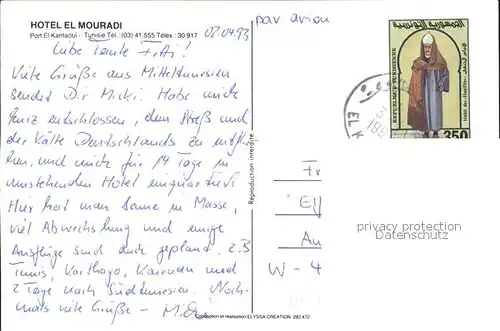 HOTEL EL MOURADI
Port El Kantaoui - Tunisie Tél.: (03) 41.555 Télex : 30 917
02.04.93
par avion
Liebe Tante Fifi!
Viele Grüße aus Mitteltunesien
sendet Dir Micki. Habe mich
ganz entschlossen, dem Streß und
der Kälte Deutschlands zu entflie-
hen, und mich für 14 Tage in
umstehenden Hotel einquartiert.
Hier hat man Sonne in Masse,
viel Abwechslung und einige
Ausflüge sind auch geplant. z.B
Tunis, Karthago, Kairuan und
2 Tage nach Südtunesien. Noch-
mals viele Grüße -
Conception et réalisation ELYSSA CREATION. 283.472
Reproduction interdite
REPUBLIQUE TUNISIENNE
الجمهورية التونسية
350
EL K
199
Fr
Ell
An
W - 4
privacy protection
Datenschutz